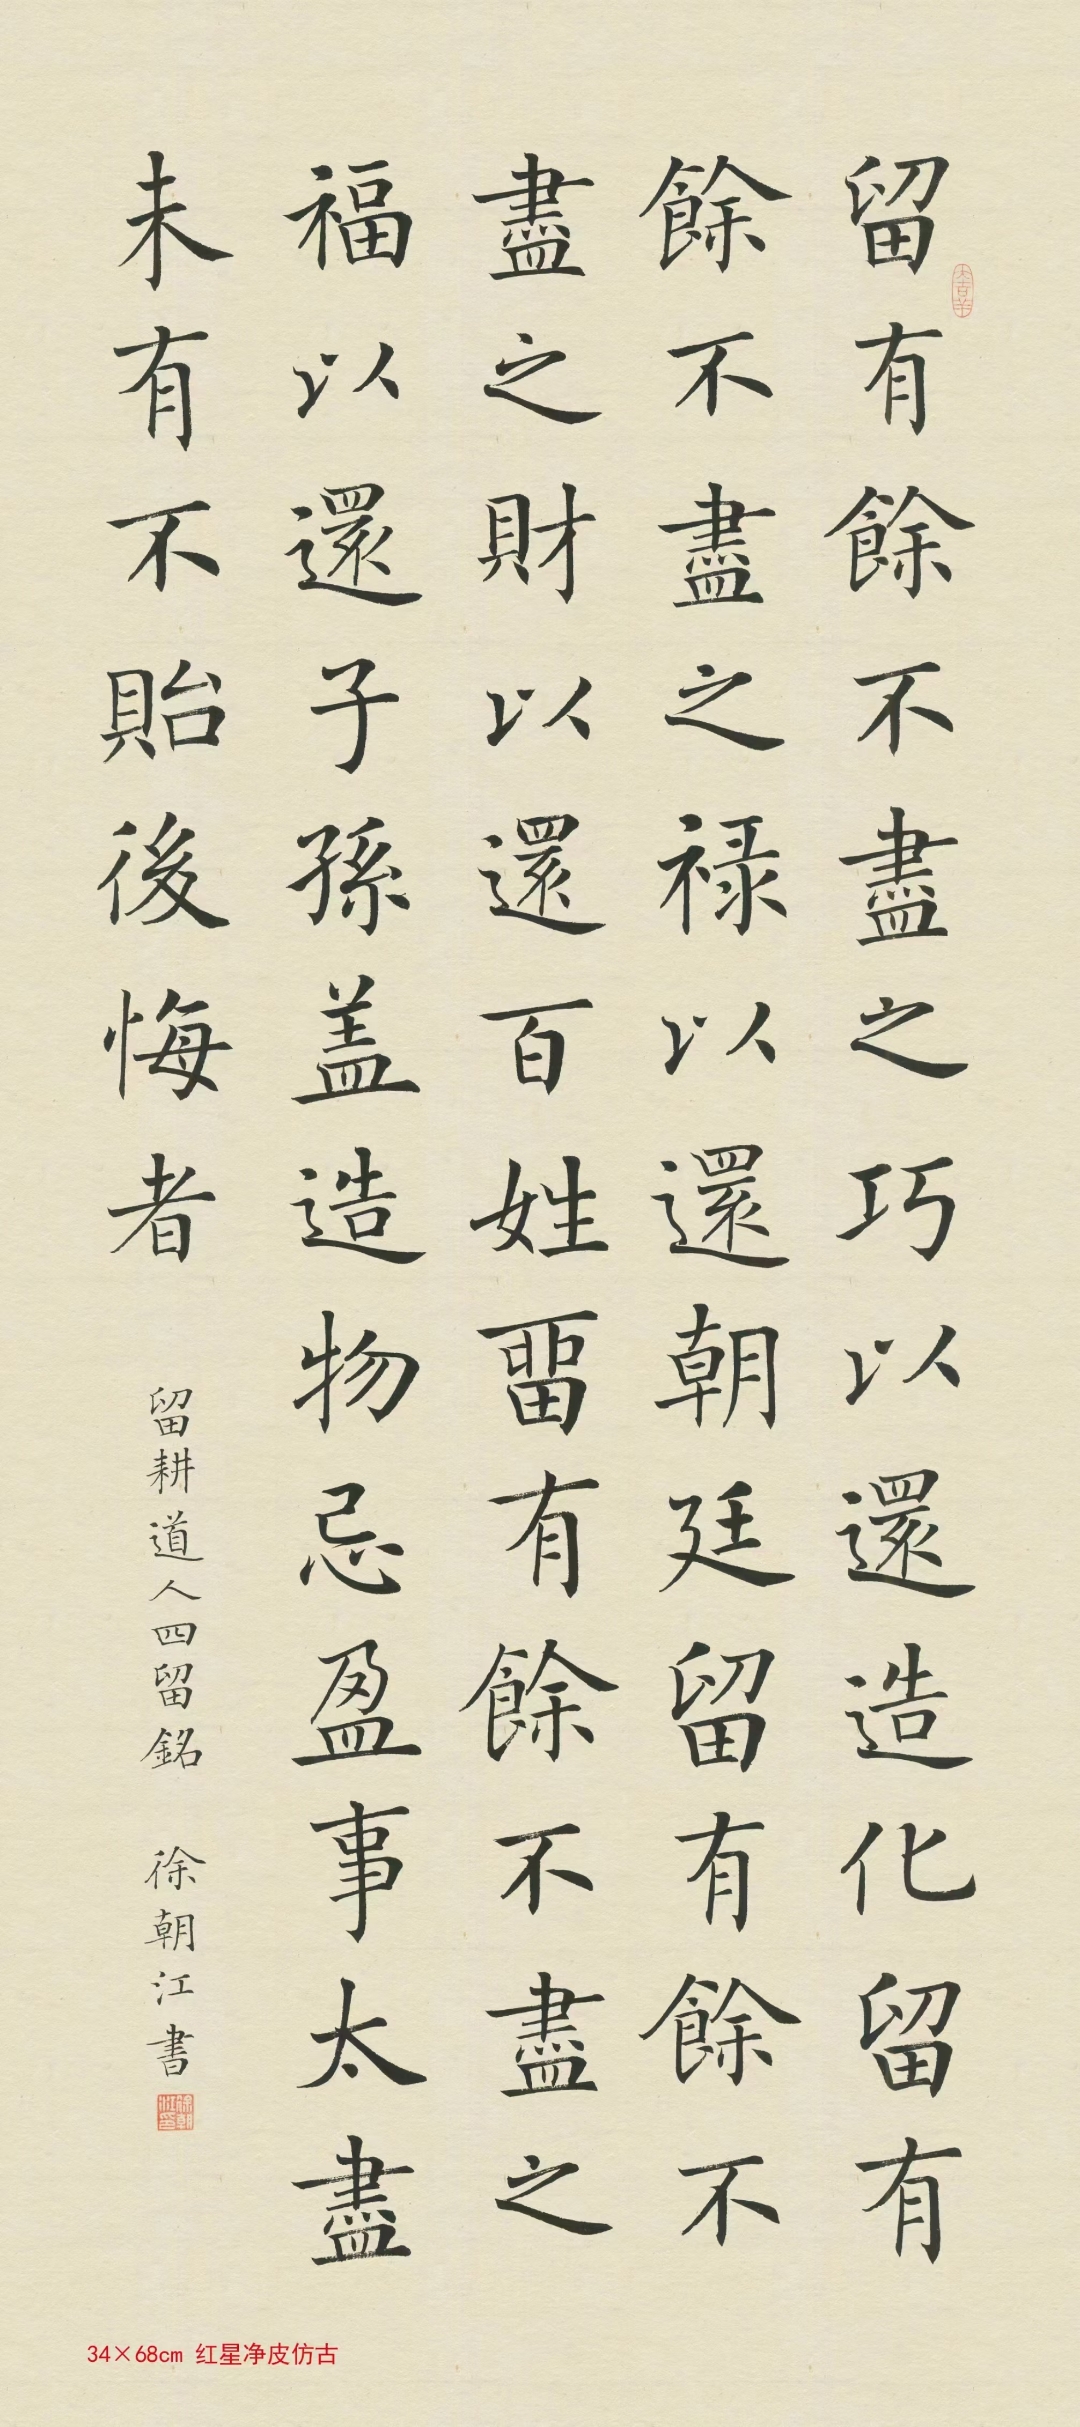 留有餘不盡之巧以還造化留有
餘不盡之禄以還朝廷留有餘不
盡之財以還百姓畱有餘不盡之
福以還子孫盖造物忌盈事太盡
未有不貽後悔者
留耕道人四留銘 徐朝江書
大吉羊
徐朝江印
34×68cm 红星净皮仿古